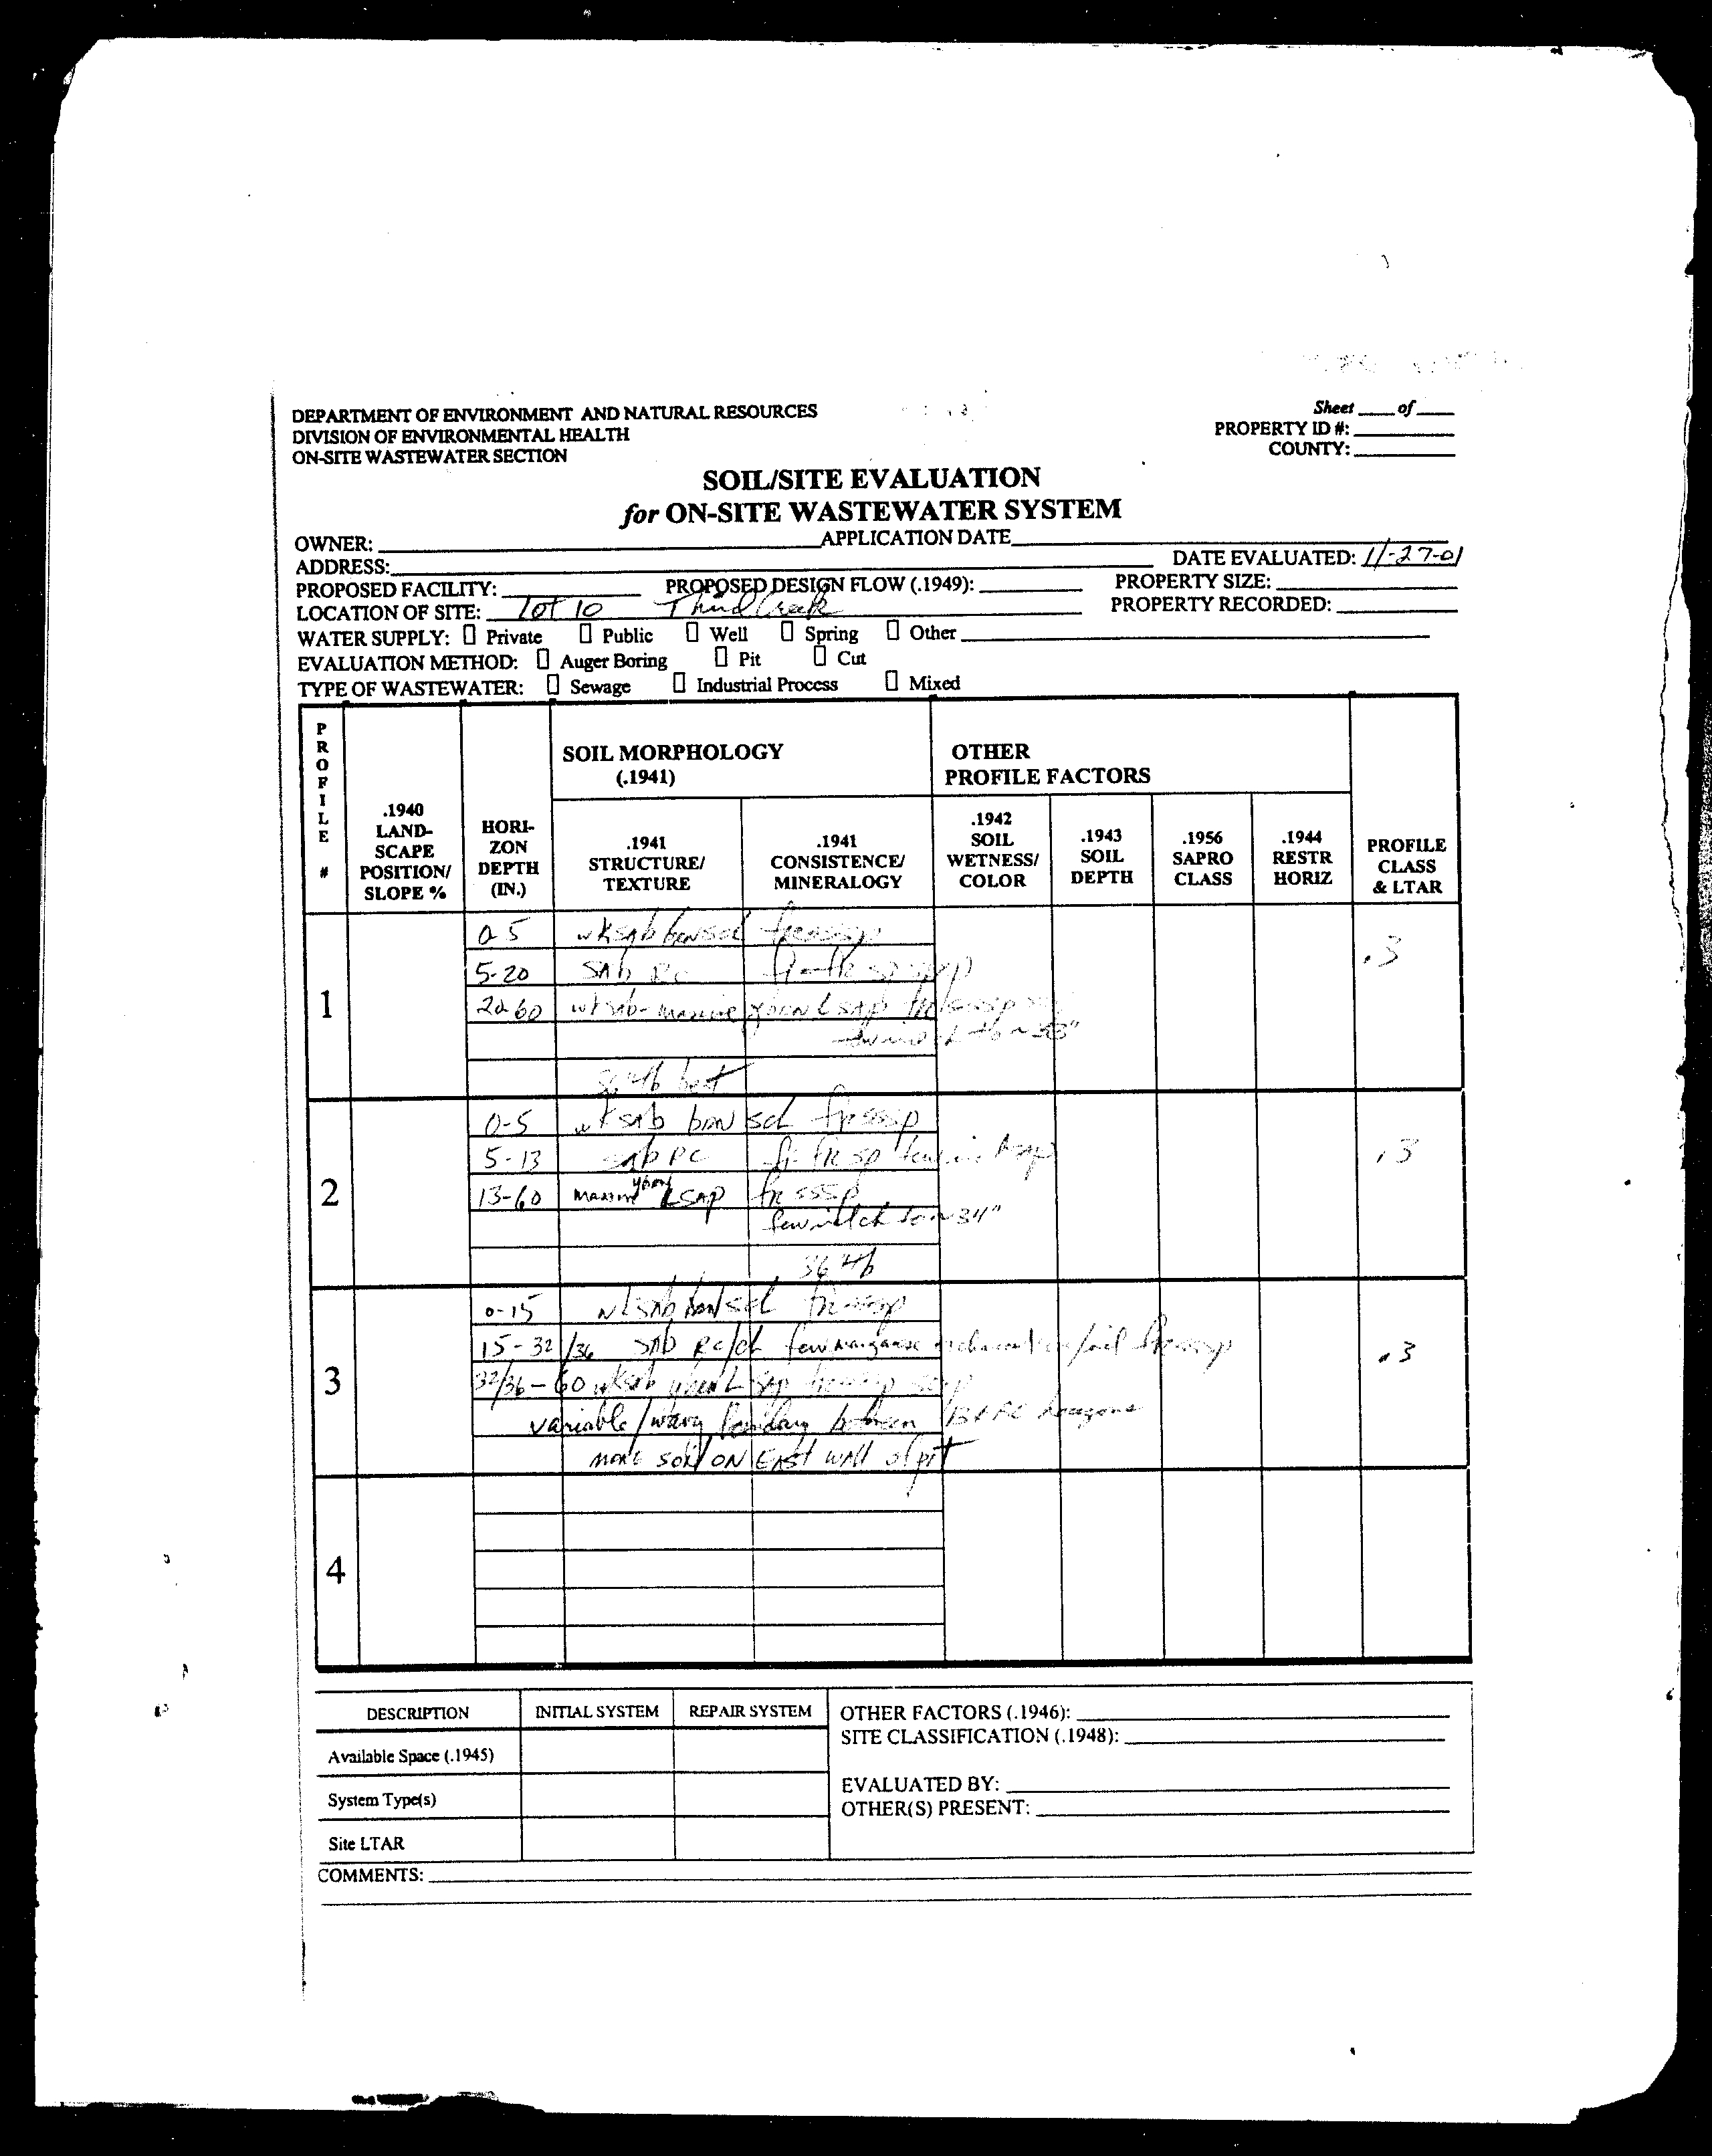 DEPARTMENT OF ENVIRONMENT AND NATURAL RESOURCES
DIVISION OF ENVIRONMENTAL HEALTH
ON-SITE WASTEWATER SECTION
Sheet ___ of ___
PROPERTY ID #:
COUNTY:
SOIL/SITE EVALUATION
for ON-SITE WASTEWATER SYSTEM
OWNER: APPLICATION DATE
ADDRESS: DATE EVALUATED: 11-27-01
PROPOSED FACILITY: PROPOSED DESIGN FLOW (.1949): PROPERTY SIZE:
LOCATION OF SITE: Lot 10 Third Creek PROPERTY RECORDED:
WATER SUPPLY: Private Public Well Spring Other
EVALUATION METHOD: Auger Boring Pit Cut
TYPE OF WASTEWATER: Sewage Industrial Process Mixed
PROFILE #
.1940 LAND-SCAPE POSITION/ SLOPE %
HORI-ZON DEPTH (IN.)
SOIL MORPHOLOGY (.1941)
.1941 STRUCTURE/ TEXTURE
.1941 CONSISTENCE/ MINERALOGY
OTHER PROFILE FACTORS
.1942 SOIL WETNESS/ COLOR
.1943 SOIL DEPTH
.1956 SAPRO CLASS
.1944 RESTR HORIZ
PROFILE CLASS & LTAR
1
0-5 wksab brnscl frsssp
.3
5-20 sab RC
20-60 wksab-massive ybrn L sap fr sssp
best
2
0-5 wksab brn scl fr sssp
5-13 sab RC fi-fr sp few
.3
13-60 massive ybrn L sap fr sssp
few mich to ~34"
36"
3
0-15 wksab brn scl fr sssp
15-32/36 sab RC/cl few manganese
.3
32/36-60 wksab ybrn L sap
variable/wavy boundary between horizons
more soil ON EAST wall of pit
4
DESCRIPTION INITIAL SYSTEM REPAIR SYSTEM
Available Space (.1945)
System Type(s)
Site LTAR
OTHER FACTORS (.1946):
SITE CLASSIFICATION (.1948):
EVALUATED BY:
OTHER(S) PRESENT:
COMMENTS: